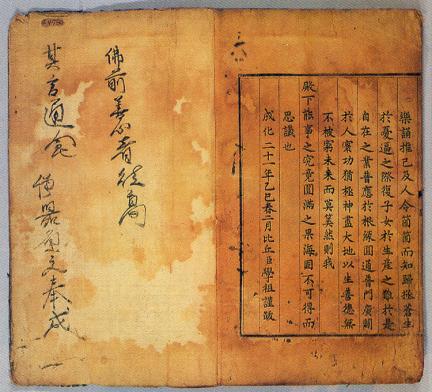 樂誦推己及人令箇箇而知歸拯蒼生
於憂逼之際復子女於生産之難於是
自在之業普應於根緣圓通普門廣開
於人寰功猶極神盡大地以生善德無
不被窮未來而莫筭然則我
殿下能事之究竟圓滿之果海固不可得而
思議也
成化二十一年乙巳春二月比丘臣學祖謹跋
佛前善心者
其言通 奉成